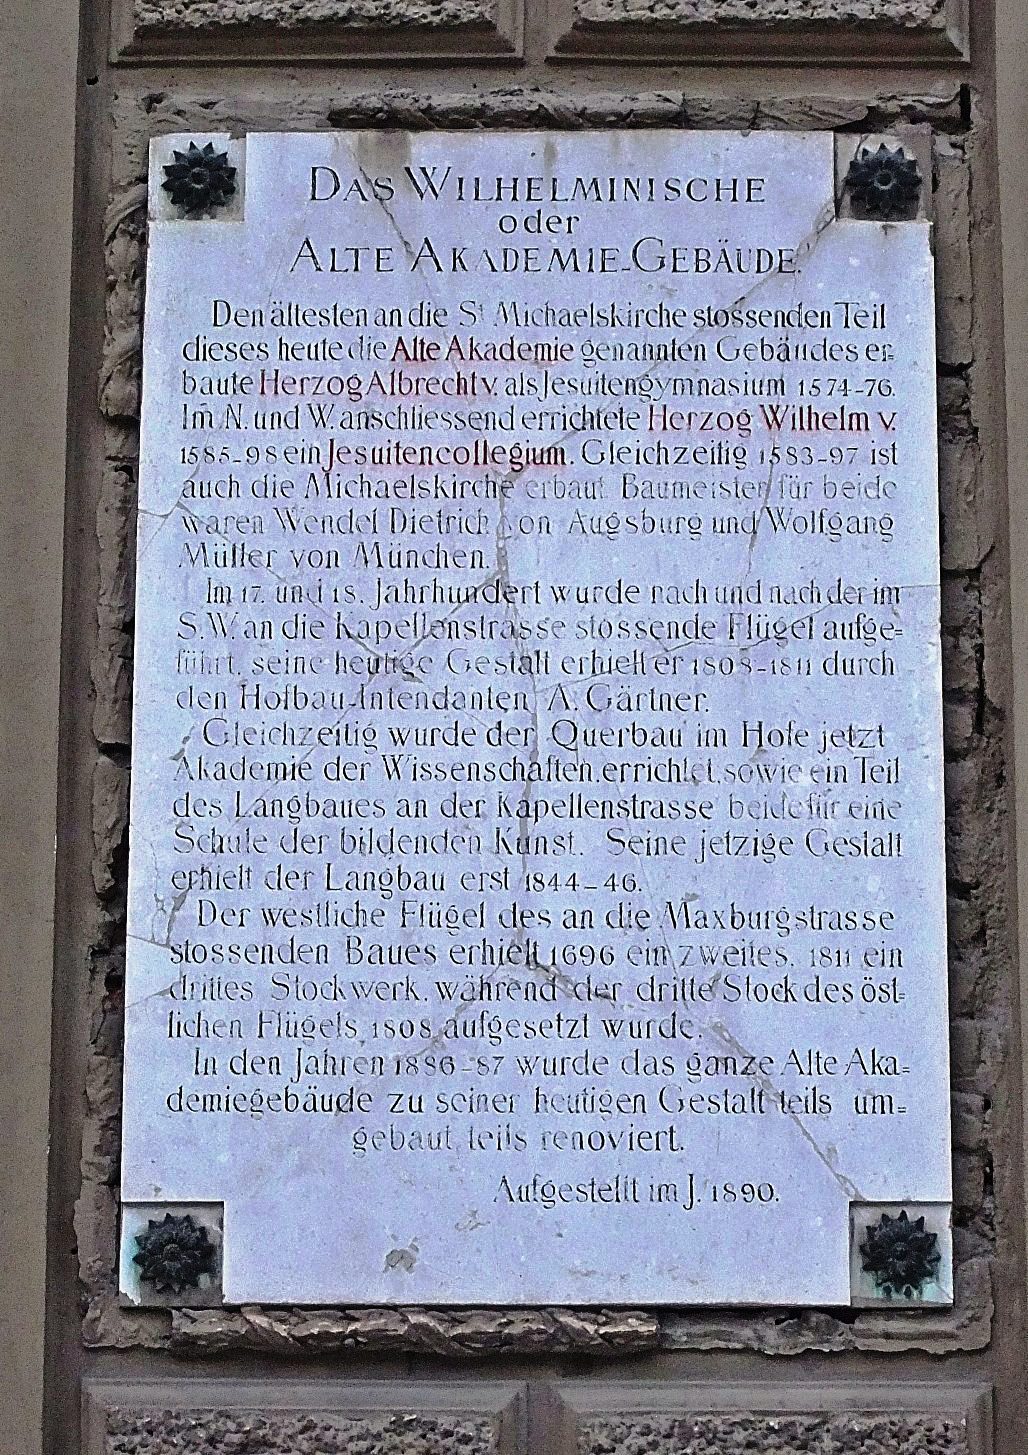 DAS WILHELMINISCHE
oder
ALTE AKADEMIE-GEBÄUDE.
Den ältesten an die St Michaelskirche stossenden Teil
dieses heute die Alte Akademie genannten Gebäudes er-
baute Herzog Albrecht V. als Jesuitengymnasium 1574-76.
Im N. und W. anschliessend errichtete Herzog Wilhelm V.
1585-98 ein Jesuitencollegium. Gleichzeitig 1583-97 ist
auch die Michaelskirche erbaut. Baumeister für beide
waren Wendel Dietrich von Augsburg und Wolfgang
Müller von München.
Im 17. und 18. Jahrhundert wurde nach und nach der im
S.W. an die Kapellenstrasse stossende Flügel aufge=
führt, seine heutige Gestalt erhielt er 1808-1811 durch
den Hofbau-Intendanten A. Gärtner.
Gleichzeitig wurde der Querbau im Hofe jetzt
Akademie der Wissenschaften, errichtet, sowie ein Teil
des Langbaues an der Kapellenstrasse beide für eine
Schule der bildenden Kunst. Seine jetzige Gestalt
erhielt der Langbau erst 1844-46.
Der westliche Flügel des an die Maxburgstrasse
stossenden Baues erhielt 1696 ein zweites, 1811 ein
drittes Stockwerk, während der dritte Stock des öst=
lichen Flügels 1808 aufgesetzt wurde.
In den Jahren 1886-87 wurde das ganze Alte Aka=
demiegebäude zu seiner heutigen Gestalt teils um=
gebaut, teils renoviert.
Aufgestellt im J. 1890.